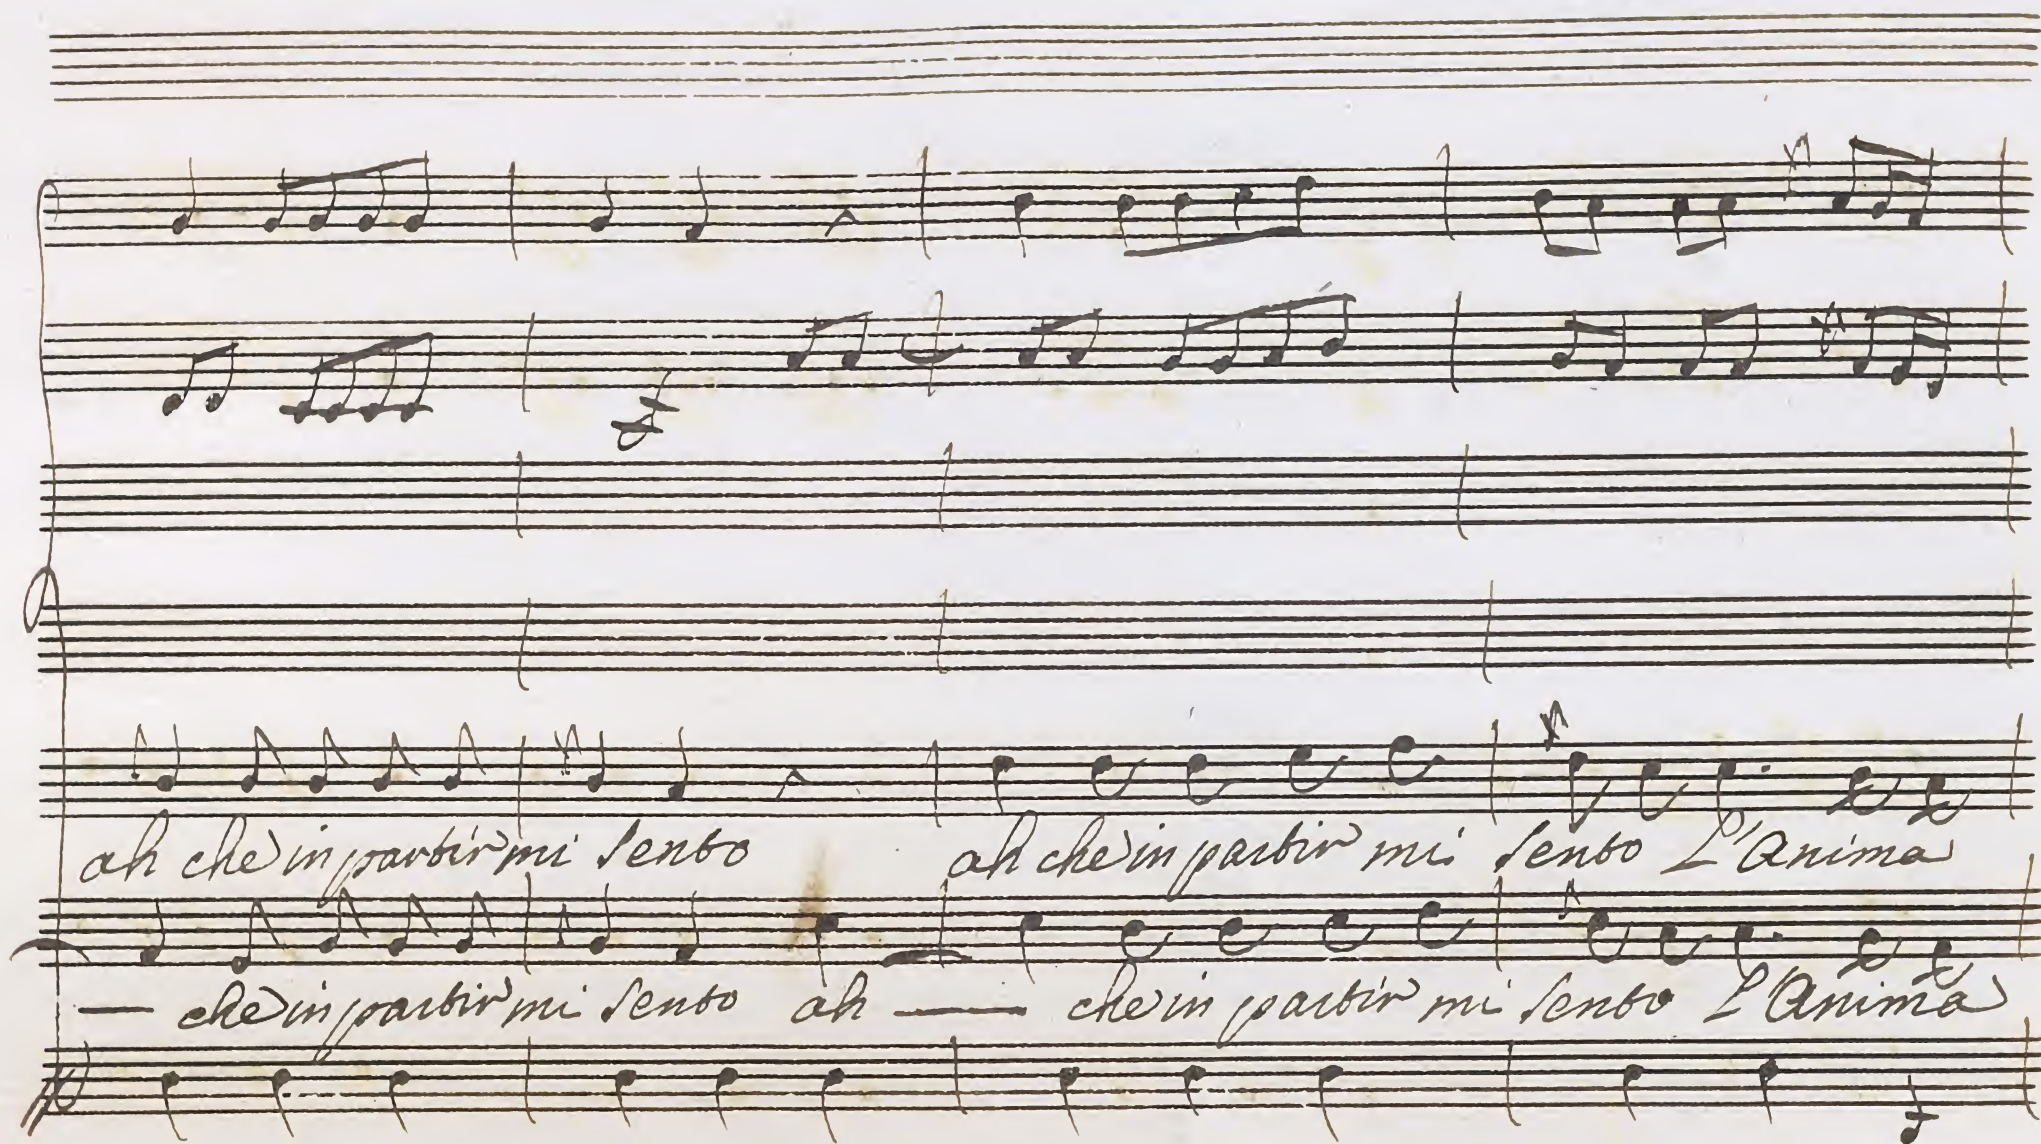 ah che in partir mi sento ah che in partir mi sento L'Anima
— che in partir mi sento ah — che in partir mi sento L'Anima